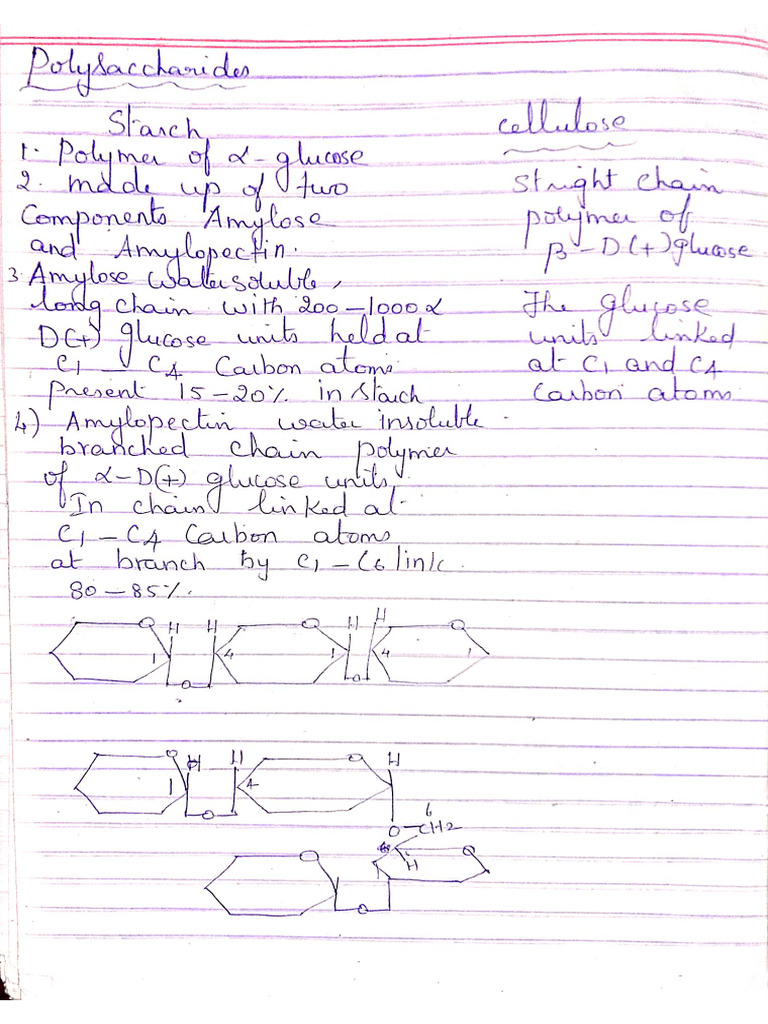 Polysaccharides
Starch
cellulose
1. Polymer of α-glucose
2. made up of two
Components Amylose
and Amylopectin.
3. Amylose watersoluble,
long chain with 200-1000 α
D(+) glucose units held at
C1 - C4 Carbon atoms
Present 15-20% in Starch
4) Amylopectin water insoluble
branched chain polymer
of α-D(+) glucose units,
In chain linked at
C1 - C4 Carbon atoms
at branch by C1 - C6 link
80-85%.
Stright Chain
polymer of
β-D(+) glucose
The glucose
units linked
at C1 and C4
Carbon atoms
O H H O H H O
1 4 1 4 1
O O
O H H O H
1 4
O
6
O-CH2
O H O
O